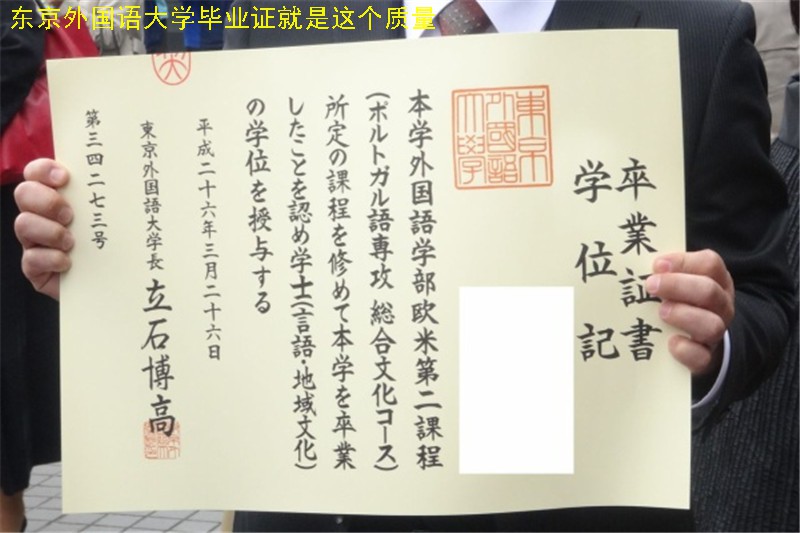 东京外国语大学毕业证就是这个质量
卒業証書
学位記
東京
外国語
大學
本学外国語学部欧米第二課程
(ポルトガル語専攻 総合文化コース)
所定の課程を修めて本学を卒業
したことを認め学士(言語・地域文化)
の学位を授与する
平成二十六年三月二十六日
東京外国語大学長 立石博高
第三四二七三号